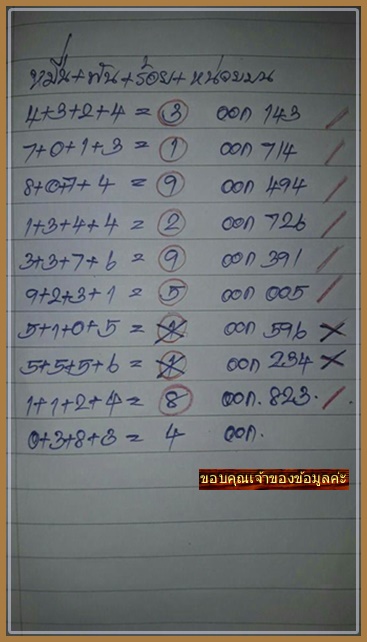 หมื่น+พัน+ร้อย+หน่วยบน
4+3+2+4 = 3 ออก 143 /
7+0+1+3 = 1 ออก 714 /
8+0+7+4 = 9 ออก 494 /
1+3+4+4 = 2 ออก 726 /
3+3+7+6 = 9 ออก 391 /
9+2+3+1 = 5 ออก 005 /
5+1+0+5 = 1 ออก 596 ×
5+5+5+6 = 1 ออก 234 ×
1+1+2+4 = 8 ออก. 823. /.
0+3+8+3 = 4 ออก.
ขอบคุณเจ้าของข้อมูลค่ะ